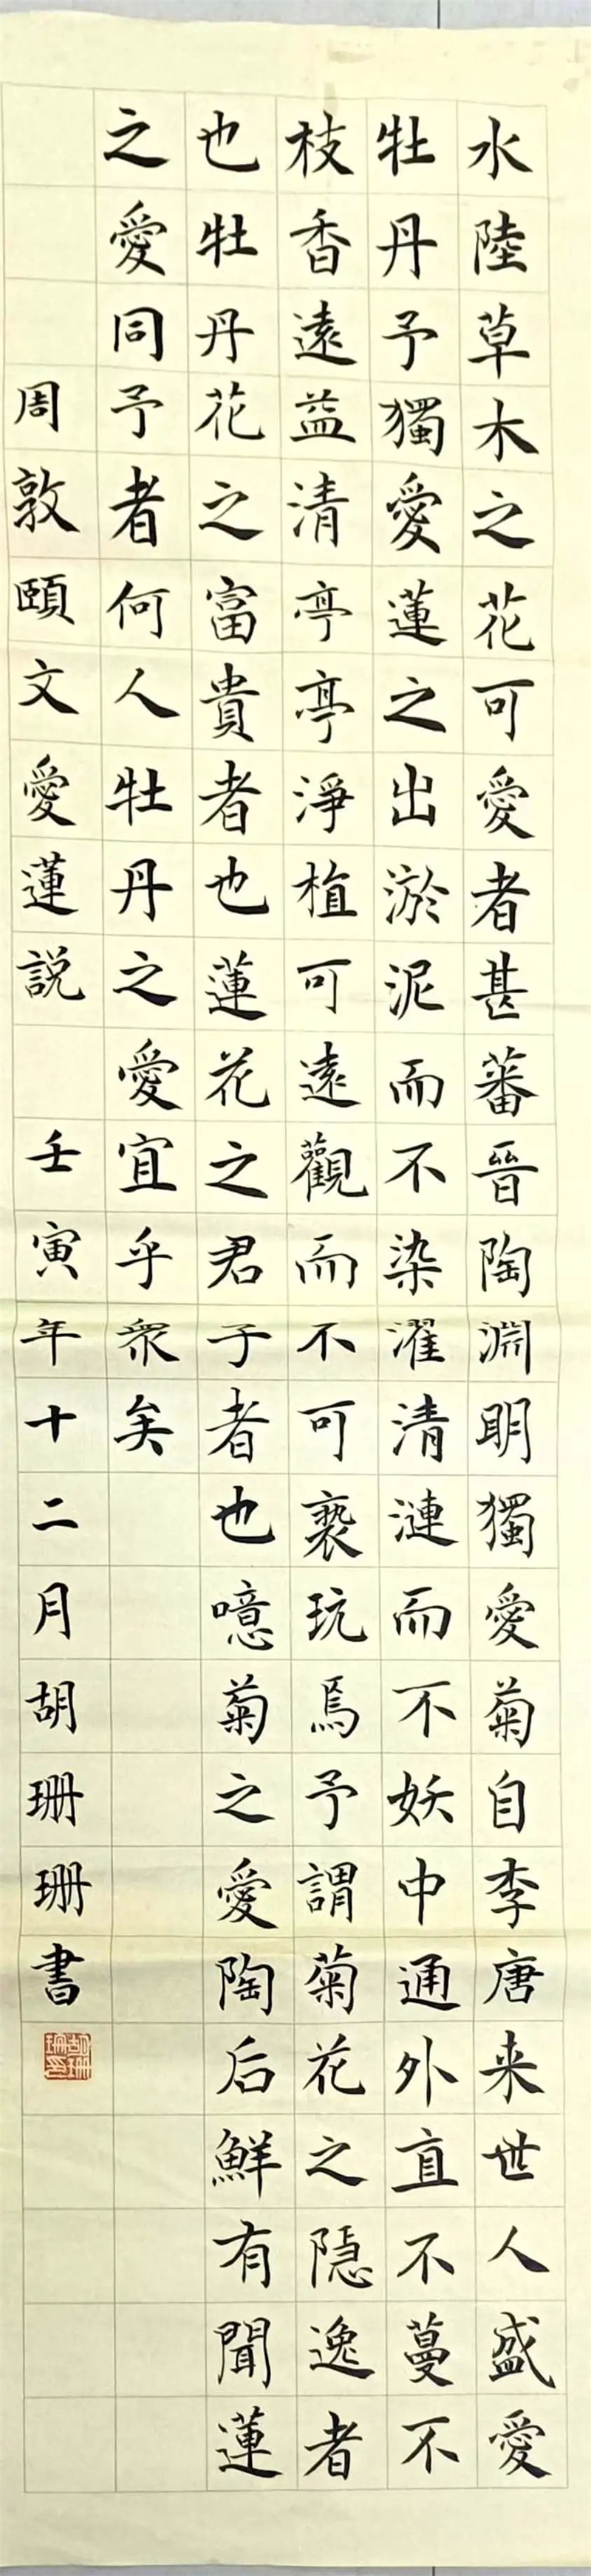 水陸草木之花可愛者甚蕃晉陶淵明獨愛菊自李唐来世人盛愛
牡丹予獨愛蓮之出淤泥而不染濯清漣而不妖中通外直不蔓不
枝香遠益清亭亭淨植可遠觀而不可褻玩焉予謂菊花之隱逸者
也牡丹花之富貴者也蓮花之君子者也噫菊之愛陶后鮮有聞蓮
之愛同予者何人牡丹之愛宜乎衆矣
周敦頤文愛蓮説 壬寅年十二月胡珊珊書